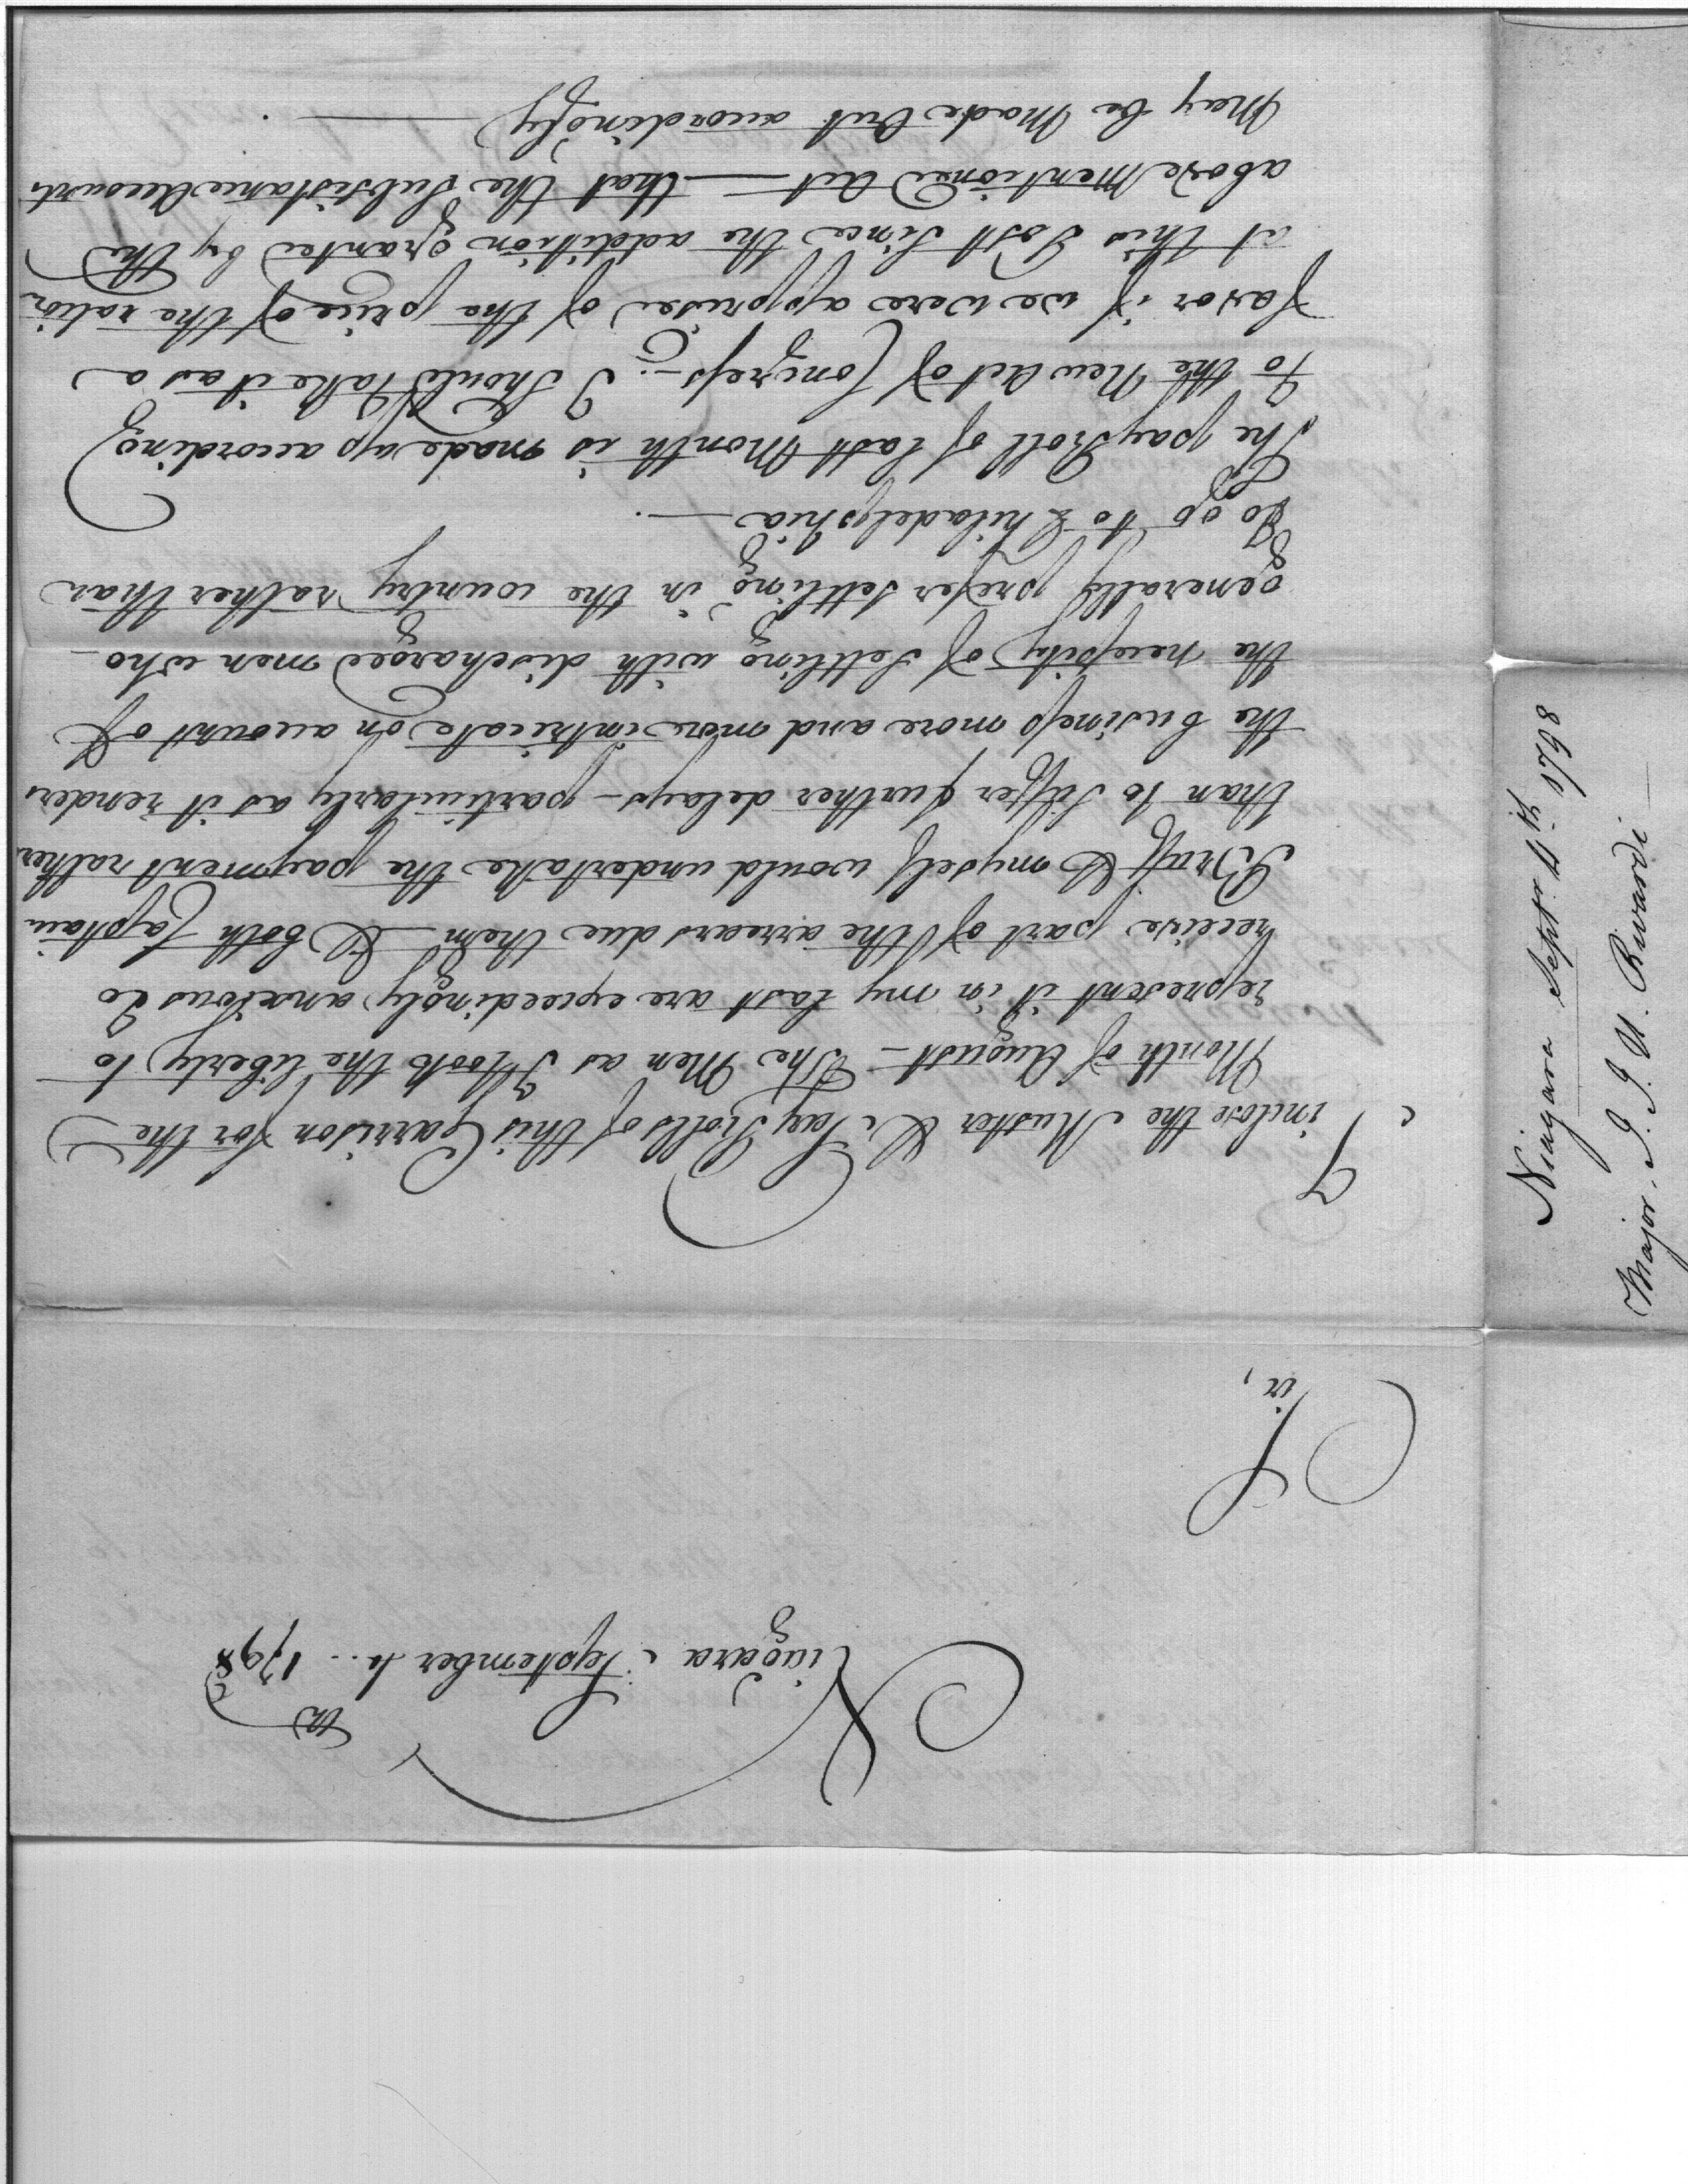 Niagara September 4th 1798
Sir,
I inclose the Muster & Pay Rolls of this Garrison for the
Month of August — The Men as I took the liberty to
represent it in my last are exceedingly anxious to
receive part of the arrears due them — & both Captain
Bruff & myself would undertake the payment rather
than to suffer further delays — particularly as it renders
the business more and more intricate on account of
the necessity of settling with discharged men who
generally prefer settling in the country rather than
go up to Philadelphia —.
The pay Roll of last Month is made up according
to the New Act of Congress —; I should take it as a
favor if we were apprised of the price of the ration
at this Post since the addition granted by the
above mentioned Act — that the subsistance Accounts
May be Made Out accordingly — .
Niagara Septr. 4th. 1798
Major. J. J. U. Rivardi —